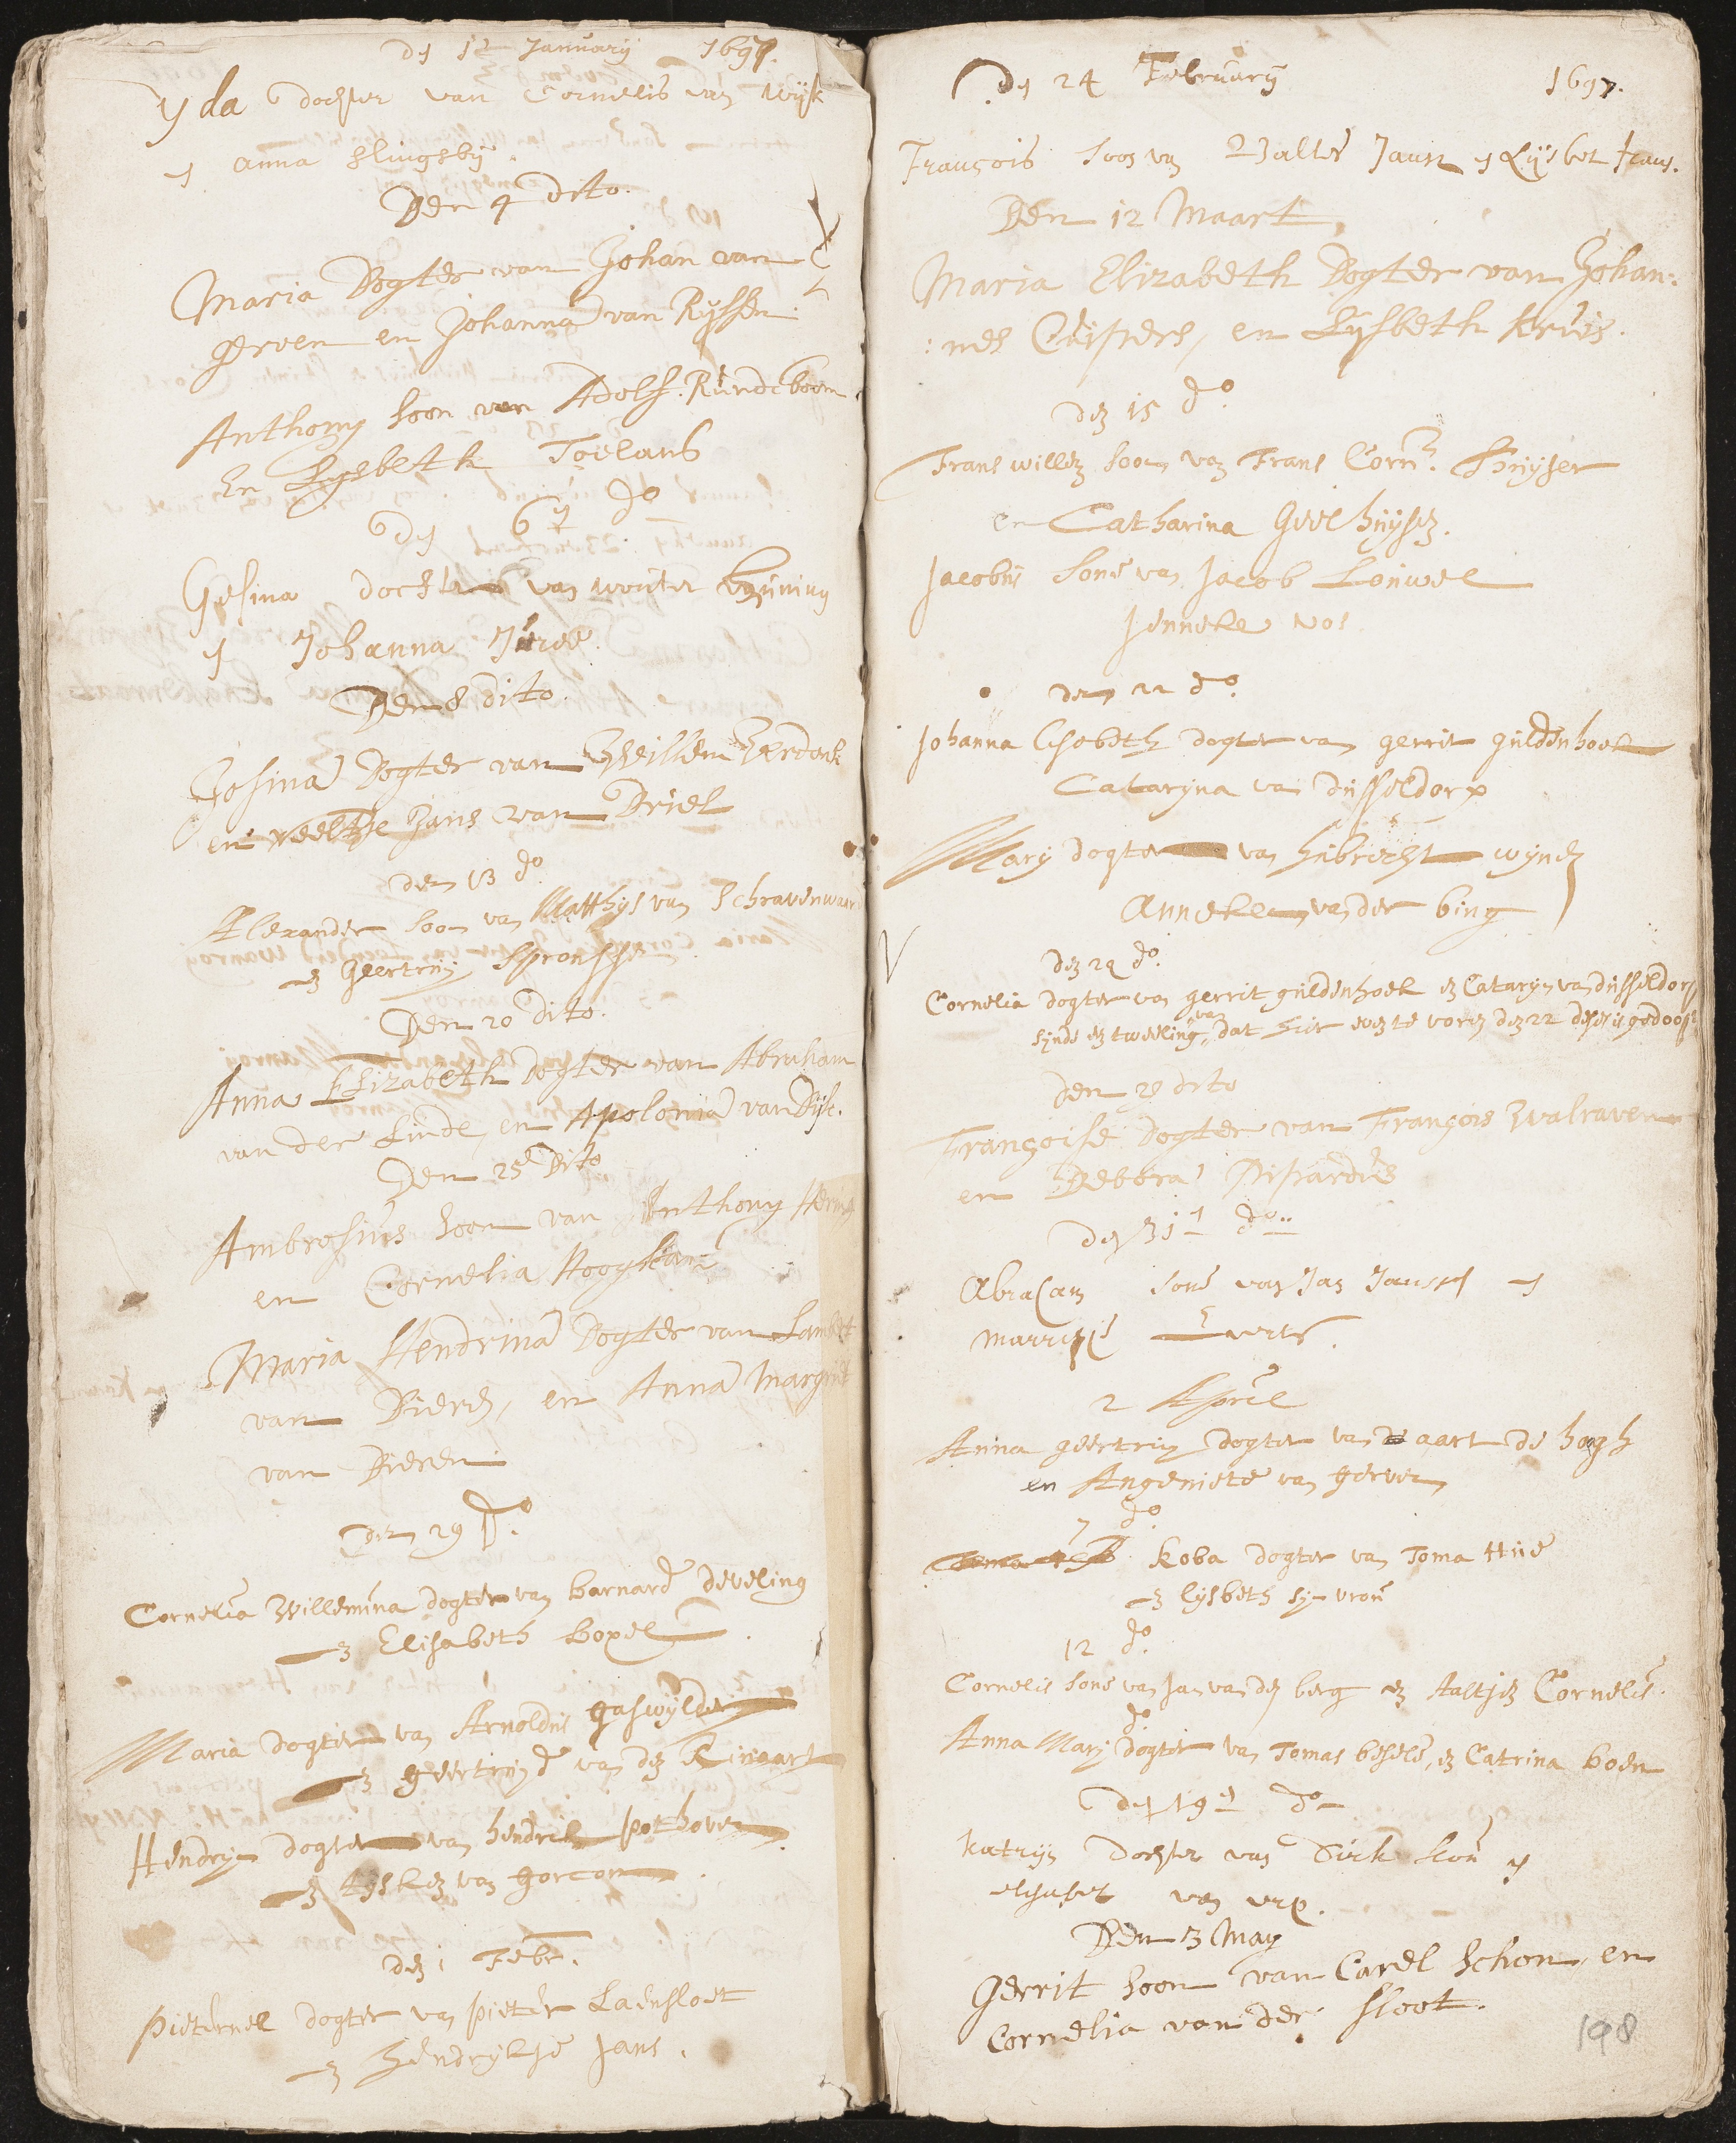 den 12 January 1697.
yda dochter van Cornelis van Wijk
en anna slingsby.
Den 4 dito.
Maria Dogter van Johan van
gerven en Johanna van Ryssen.
Anthony Soon van Adolf Rundeboom
En Lysbeth Toelans
den 6en do
Gesina dochter van wouter
en Johanna
Den 8 dito.
Gosina Dogter van Weillem
en neeltje Jans van Driel
den 13 do
Alexander Soon van Matthijs van Schravenwaar
en Geertruij Spronssen
Den 20 dito.
Anna Elizabeth Dogter van Abraham
van der Linde, en Apolonia van Dijk.
Den 25 Dito
Ambrosius Soon van Anthony
en Cornelia Hooykaas
Maria Hendrina Dogter van Lambert
van Dieren, en Anna Margriet
van Dieren
den 29 Do.
Cornelia Willemina dogter van barnard develing
en Elisabeth boxel
Maria dogter van Arnoldus gaswylder
en geertruyd van den
Hendryn dogter van hendrik pothoven
en van gorcom
den 1 Febr.
pieternel dogter van pieter Laensloet
en Hendrykje Jans.
den 24 February 1697.
François Soon van Walter Jansz en Lijsbet frans.
Den 12 Maart
Maria Elizabeth Dogter van Johan:
:nes Cuipers, en Lysbeth Kruis.
den 15 do.
Frans willem Soon van Frans Corns.
en Catharina Geelhuysen.
Jacobus Sone van Jacob Louwel
Jenneke vos
den 22 do.
Johanna Elsabeth dogter van gerrit guldenhoek
Cataryna van dusseldorp
Mary dogter van huibrecht wynen
Anneke van der bing
den 29 do.
Cornelia dogter van gerrit guldenhoek en Cataryn van dusseldorp
synde en tweeling van dat hier even te voren den 22 deser is gedoopt
den 28 dito
Françoise Dogter van François Walraven
en Debbra
den 31en do
Abraham sone van Jan Jansen en
marritje Everts.
2 April
Anna geertruy dogter van aart de hoogh
en Angeniete van gerven
7 do
Koba dogter van Toma Hue
en lijsbeth syn vrou
12 do.
Cornelis sone van Jan van den berg en Aaltjen Cornelis.
do
Anna Mary dogter van Tomas besele, en Catrina boen
den 19en do
Katryn Dochter van Dirk kou en
elsabet van
Den 3 May
Gerrit Soon van Carel Schon en
Cornelia van der Sloot.
198